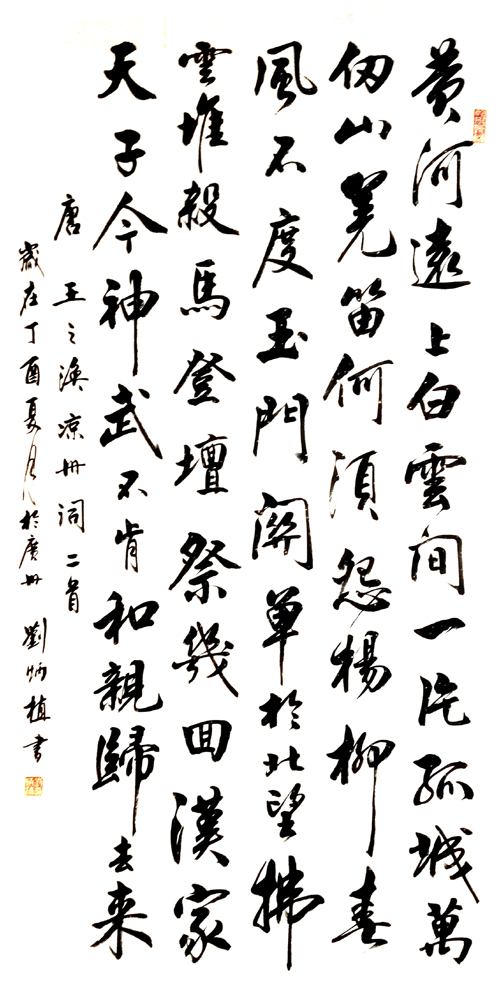 黃河遠上白雲间一片孤城萬
仞山羌笛何須怨楊柳春
風不度玉門關單於北望拂
雲堆殺馬登壇祭幾回漢家
天子今神武不肯和親歸去来
唐 王之渙凉州词二首
歲在丁酉夏月於廣州 劉炳植書